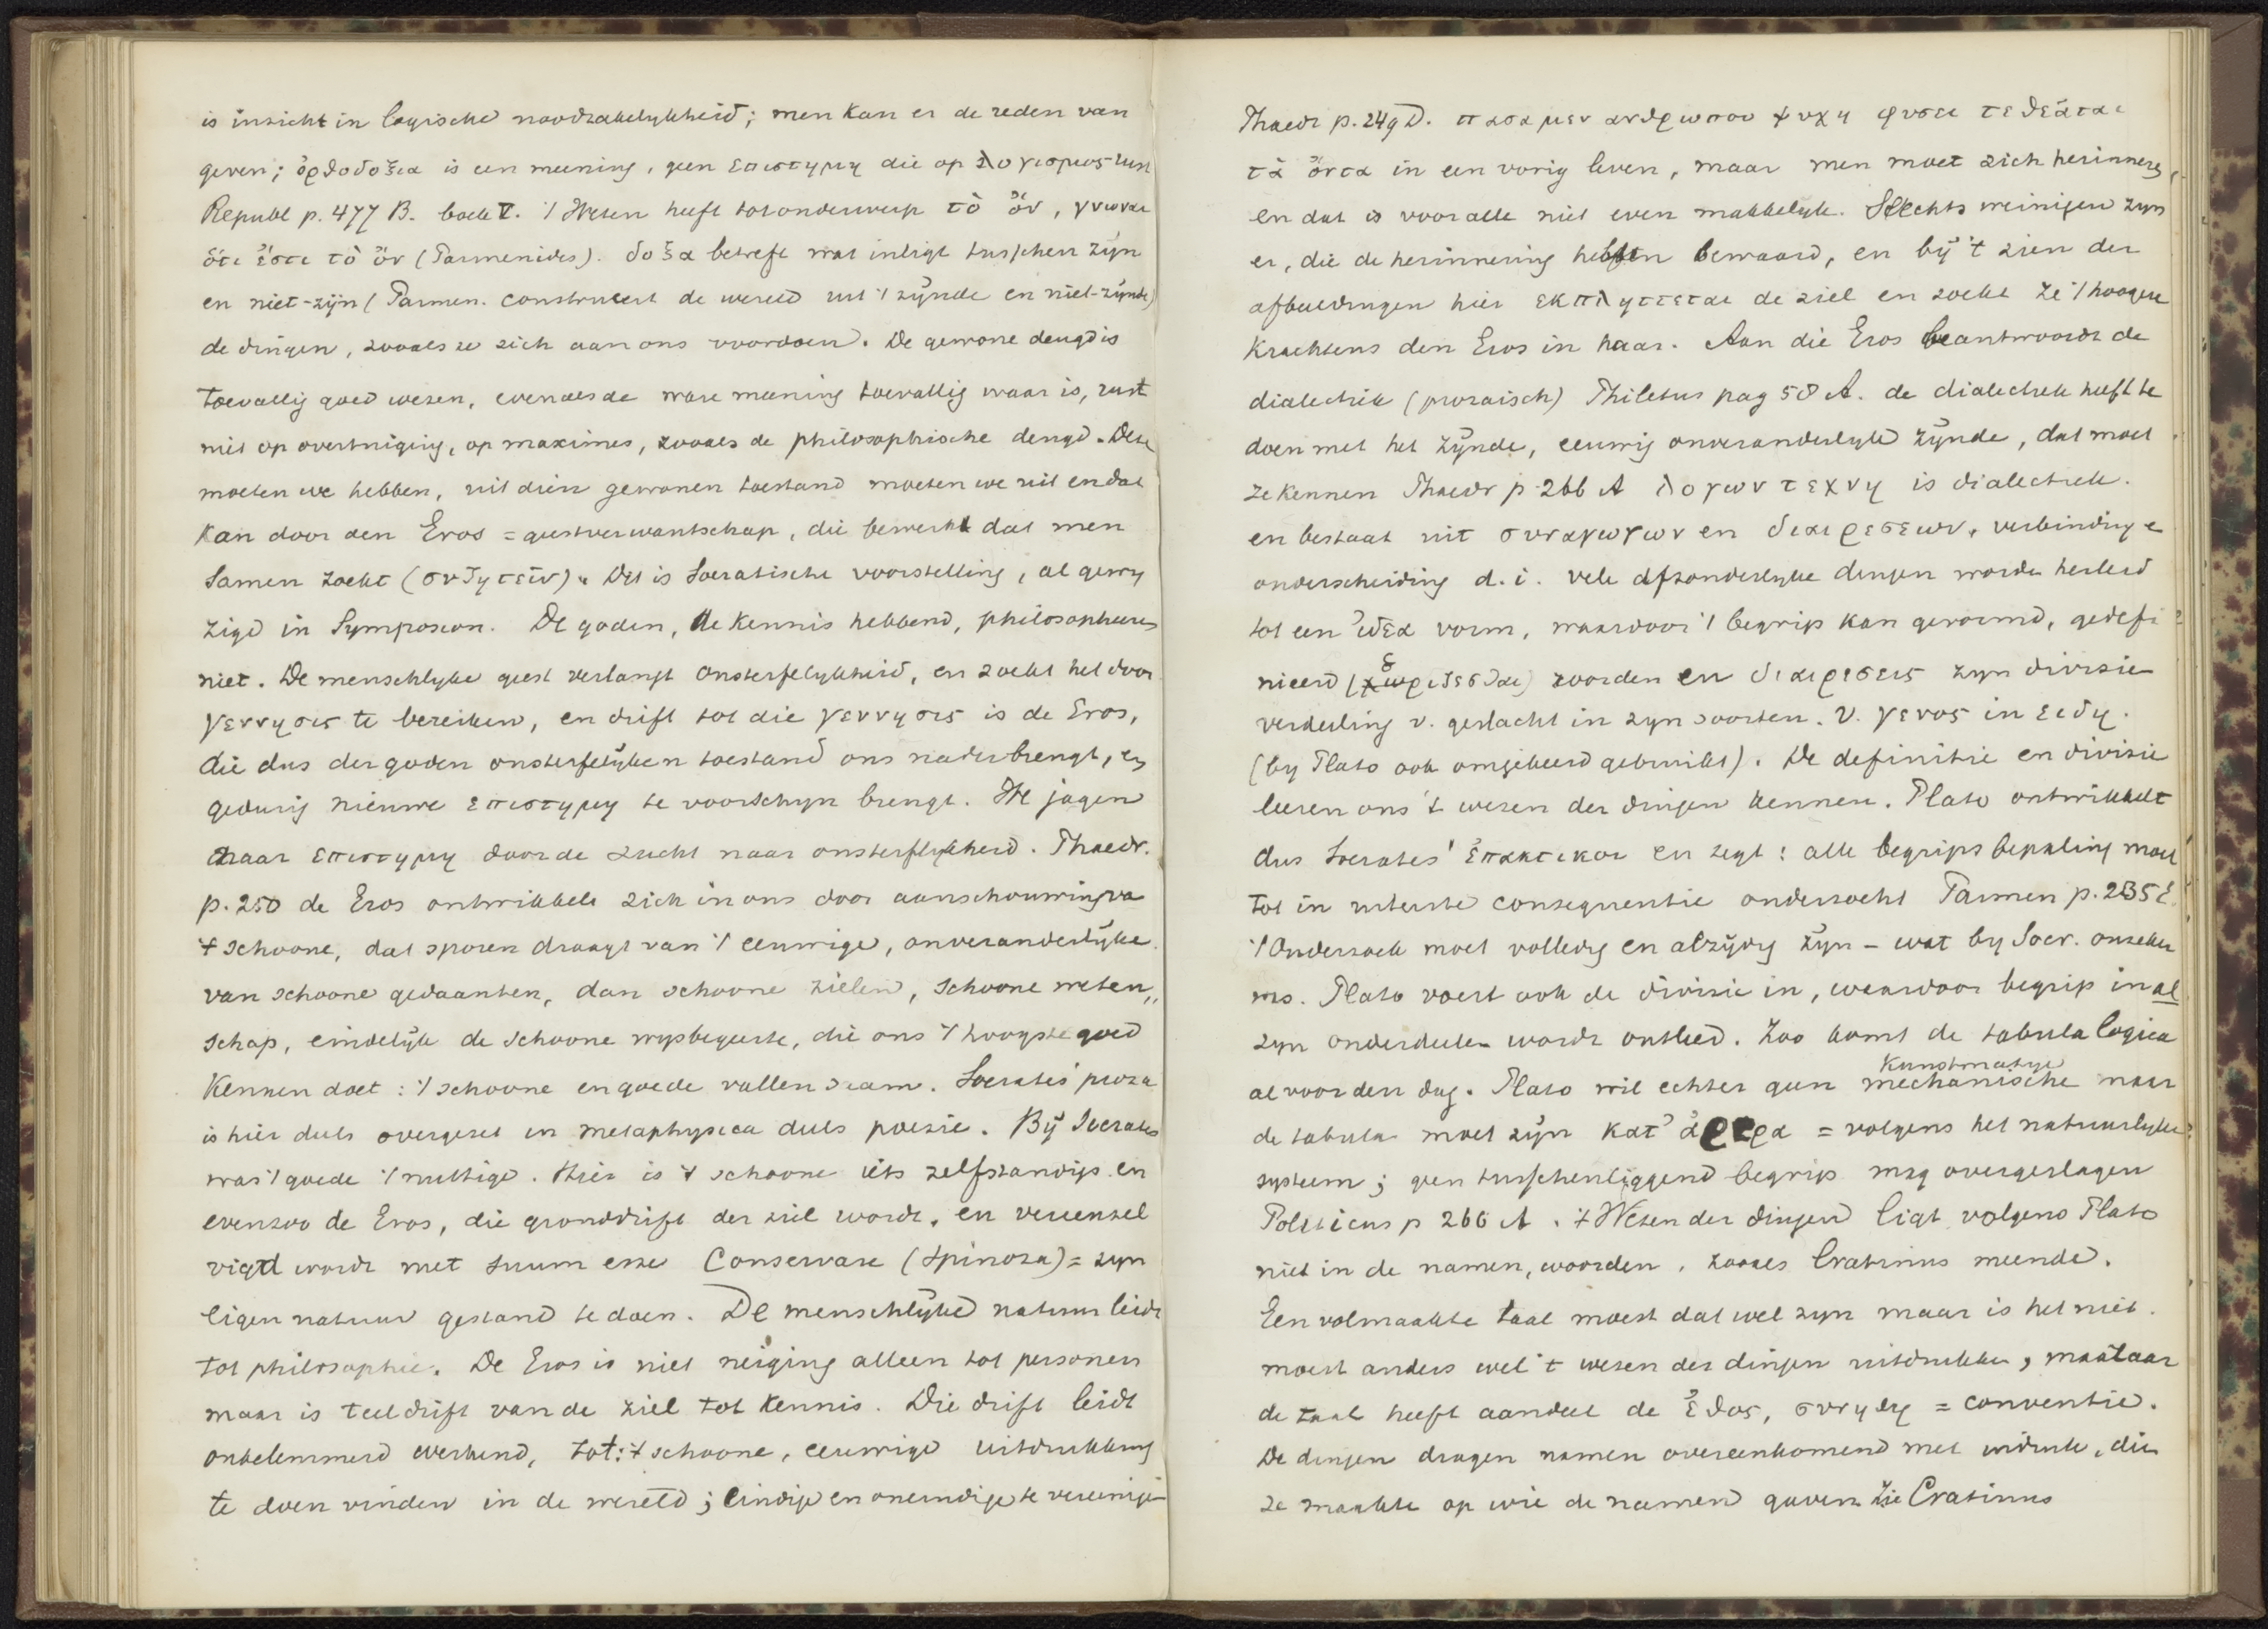 is inzicht in logische noodzakelykheid; men kan er de reden van
geven; ὀρθοδοξια is een meening, geen επιστημη die op λογισμος rust
Republ p. 477 B. boek V. 't Weten heeft tot onderwerp τὸ ὄν, γνωναι
ὅτι ἔστι τὸ ὄν (Parmenides). δοξα betreft wat inligt tusschen zÿn
en niet-zijn (Parmen. construeert de wereld uit 't zÿnde en niet-zÿnde)
de dingen, zooals ze zich aan ons voordoen. De gewone deugd is
toevallig goed wezen, evenals de ware meening toevallig waar is, rust
niet op overtuiging, op maximes, zooals de philosophische deugd. Deze
moeten we hebben, uit dien gewonen toestand moeten we uit en dat
kan door den Eros = geestverwantschap, die bewerkt dat men
samen zoekt (συζητεῖν). Dit is Socratische voorstelling, al gewy
zigd in Symposion. De goden, de kennis hebbend, philosopheeren
niet. De menschlyke geest verlangt onsterfelykheid, en zoekt het door
γεννησις te bereiken, en drift tot die γεννησις is de Eros,
die dus der goden onsterfelÿken toestand ons nader brengt, en
gedurig nieuwe επιστημη te voorschyn brengt. We jagen
naar επιστημη door de zucht naar onsterflykheid. Phaedr.
p. 250 de Eros ontwikkelt zich in ons door aanschouwing va
't schoone, dat sporen draagt van 't eeuwige, onveranderlÿke.
van schoone gedaanten, dan schoone zielen, schoone weten„
schap, eindelÿk de schoone wysbegeerte, die ons 't hoogste goed
kennen doet: 't schoone en goede vallen saam. Socrates' proza
is hier deels overgezet in metaphysica deels poezie. Bÿ Socrates
was 't goede 't nuttige. Hier is 't schoone iets zelfstandigs en
evenzoo de Eros, die gronddrift der ziel wordt, en vereenzel
vigd wordt met suum esse Conservare (Spinoza) = zyn
eigen natuur gestand te doen. De menschlÿke natuur leidt
tot philosophie. De Eros is niet neiging alleen tot personen
maar is teeldrift van de ziel tot kennis. Die drift leidt
onbelemmerd werkend, tot: 't schoone, eeuwige uitdrukking
te doen vinden in de wereld; eindige en oneindige te vereenige
Phaedr p. 249 D. πασα μεν ανθρωπου ψυχη φυσει τεθεᾱται
τὰ ὄντα in een vorig leven, maar men moet zich herinneren,
en dat is voor alle niet even makkelyk. Slechts weinigen zyn
er, die de herinnering hebben bewaard, en bÿ 't zien der
afbeeldingen hier εκπληττεται de ziel en zoekt ze 't hoogere
krachtens den Eros in haar. Aan die Eros beantwoordt de
dialectiek (prozaisch) Philebus pag 58 A. de dialectiek heeft te
doen met het zÿnde, eeuwig onveranderlyke zÿnde, dat moet
ze kennen Phaedr p. 266 A λογων τεχνη is dialectiek.
en bestaat uit συναγωγων en διαιρεσεων, verbinding e
onderscheiding d. i. vele afzonderlyke dingen worden herleid
tot een ἰδεα vorm, waardoor 't begrip kan gevormd, gedefi
nieerd (ὁριζεσθαι) worden en διαιρεσεις zyn divisie
verdeeling v. geslacht in zyn soorten. v. γενος in ειδη.
(by Plato ook omgekeerd gebruikt). De definitie en divisie
leeren ons 't wezen der dingen kennen. Plato ontwikkelt
dus Socrates' ἐπακτικοι en zegt: alle begripsbepaling moet
tot in uiterste consequentie onderzocht Parmen p. 235 E.
't Onderzoek moet volledig en alzÿdig zÿn – wat by Socr. onzeker
was. Plato voert ook de divisie in, waardoor begrip in al
zyn onderdeelen wordt ontleed. Zoo komt de tabula logica
al voor den dag. Plato wil echter geen mechanische maar
kunstmatige
de tabula moet zÿn κατ' ἀρερα = volgens het natuurlyke
systeem; geen tusschenliggend begrip mag overgeslagen
Politicus p 266 A. 't Wezen der dingen ligt volgens Plato
niet in de namen, woorden, zooals Cratinus meende.
Een volmaakte taal moest dat wel zyn maar is het niet.
moest anders wel 't wezen der dingen uitdrukken, maar aan
de taal heeft aandeel de ἔθος, συνηθη = conventie.
De dingen dragen namen overeenkomend met indruk, die
ze maakte op wie de namen gaven zie Cratinus